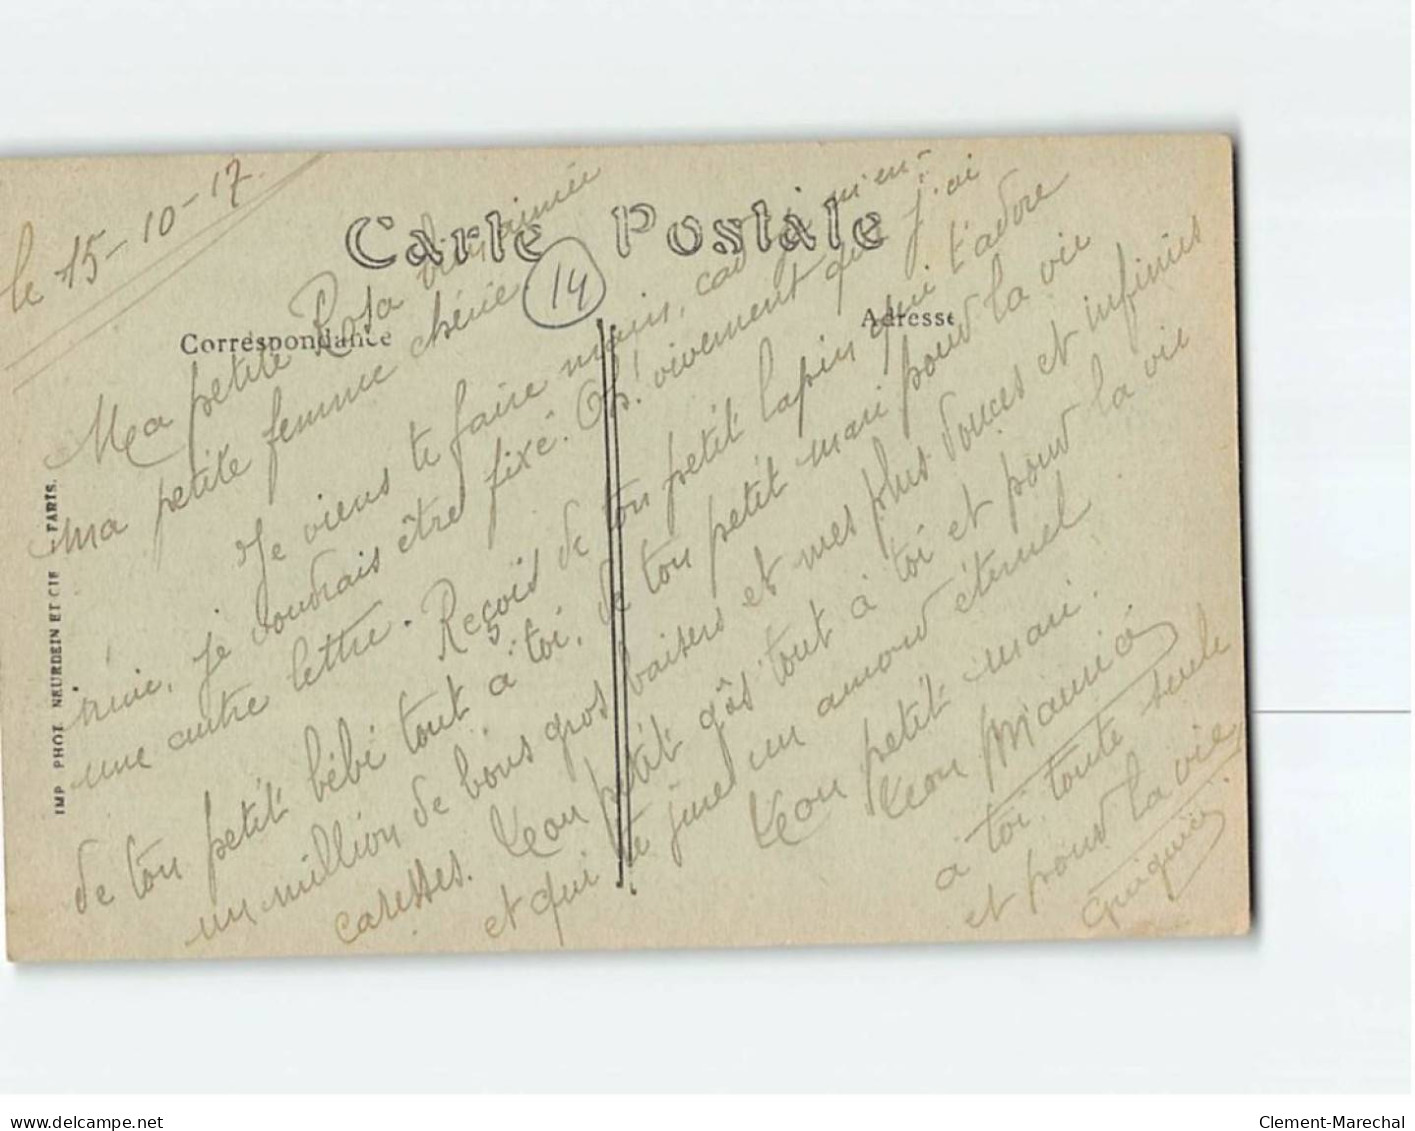 le 15-10-17.
Carte Postale
Correspondance
Adresse
14
IMP PHOT NEURDEIN ET CIE PARIS.
Ma petite Rosa bien aimée
ma petite femme chérie
Je viens te faire mais, car je m'en-
nuie. Je voudrais être fixé. Oh! vivement que j'ai
une autre lettre. Reçois de ton petit lapin qui t'adore
de ton petit bébé tout à toi, de ton petit mari pour la vie
un million de bons gros baisers et mes plus douces et infinies
caresses. Ton petit gâs tout à toi et pour la vie
et qui te jure un amour éternel
Ton petit mari.
Ton Maurice
à toi toute seule
et pour la vie
Delcampe.net
Clement-Marechal